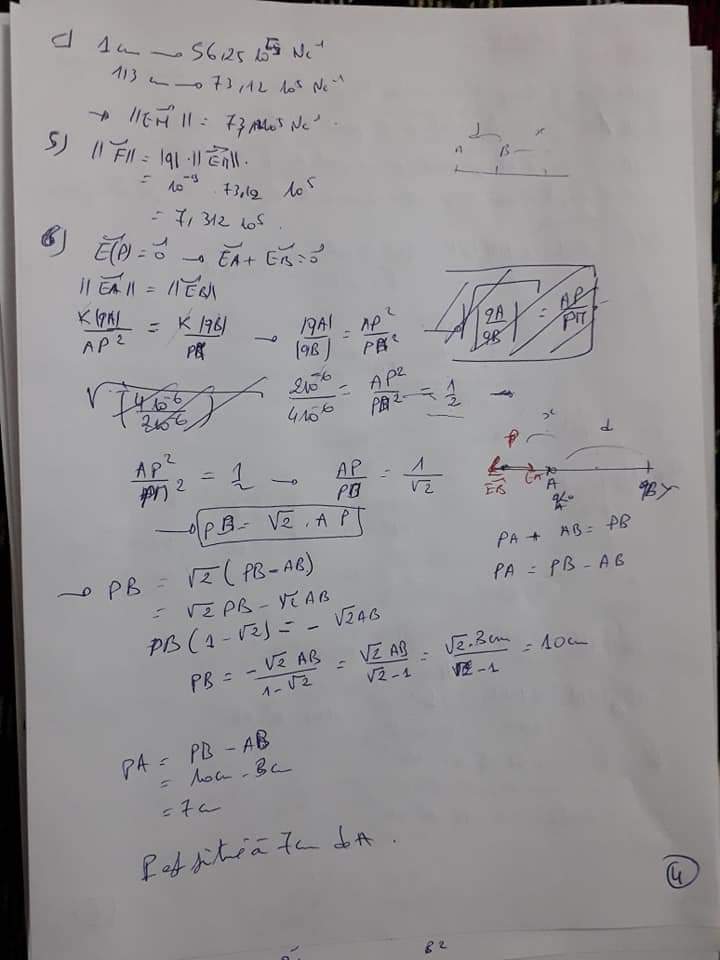 c) 1 cm → 56,25 10⁵ NC⁻¹
1,3 cm → 73,12 10⁵ NC⁻¹
→ ||EM|| = 73,12 10⁵ NC⁻¹.
5) ||F|| = |q|·||EM||.
= 10⁻⁹ 73,12 10⁵
= 7,312 10⁵.
6) E(P) = 0 → EA + EB = 0
||EA|| = ||EB||
K|qA|/AP² = K|qB|/PB² → |qA|/|qB| = AP²/PB²
2 10⁻⁶/4 10⁻⁶ = AP²/PB² = 1/2
AP²/PB² = 1/2 → AP/PB = 1/√2
→ PB = √2 . AP
d
x
B
P
x
d
EB
EA
A
qA
qB
PA + AB = PB
PA = PB - AB
→ PB = √2 (PB - AB)
= √2 PB - √2 AB
PB (1 - √2) = - √2 AB
PB = -√2 AB/1-√2 = √2 AB/√2-1 = √2.3cm/√2-1 = 10cm
PA = PB - AB
= 10cm - 3cm
= 7cm
P est situé à 7cm de A.
4